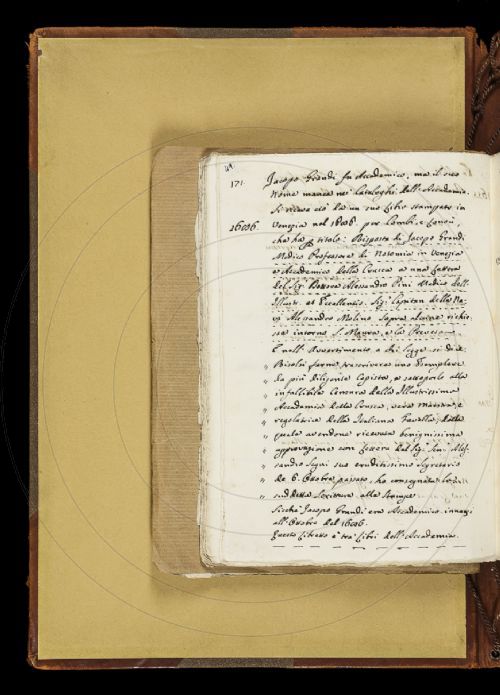 171.
Jacopo Grandi fu Accademico, ma il suo
nome manca ne' Cataloghi dell'Accademia.
Si ricava ciò da un suo Libro stampato in
1686. Venezia nel 1686. per Combi, e
che ha p titolo: Risposta di Jacopo Grandi
Medico Professore di Notomia in Venezia
e Accademico della Crusca a una Lettera
del Sig. Dottore Alessandro Pini Medico dell'
Illustr. ed Eccellentis. Sig. Capitan delle Na-
vi Alessandro Molino sopra alcune richie-
ste intorno S. Maura, e la Prevesa.
E nell'Avvertimento a chi legge si dice:
" farne trascrivere uno Esemplare
" da più diligente Copista, e sottoporlo alla
" infallibile Censura della Illustrissima
" Accademia della Crusca, vera maestra, e
" regolatrice della Italiana Favella; dalla
" quale avendone ricevuta benignissima
" approvazione con Lettera del Sig. Sen. Ales-
" sandro Segni suo eruditissimo Segretario
" de 6. Ottobre passato, ho consegnata la
" suddetta Scrittura alle Stampe.
Sicché Jacopo Grandi era Accademico innanzi
all'Ottobre del 1686.
Questo Libretto è tra' Libri dell'Accademia.